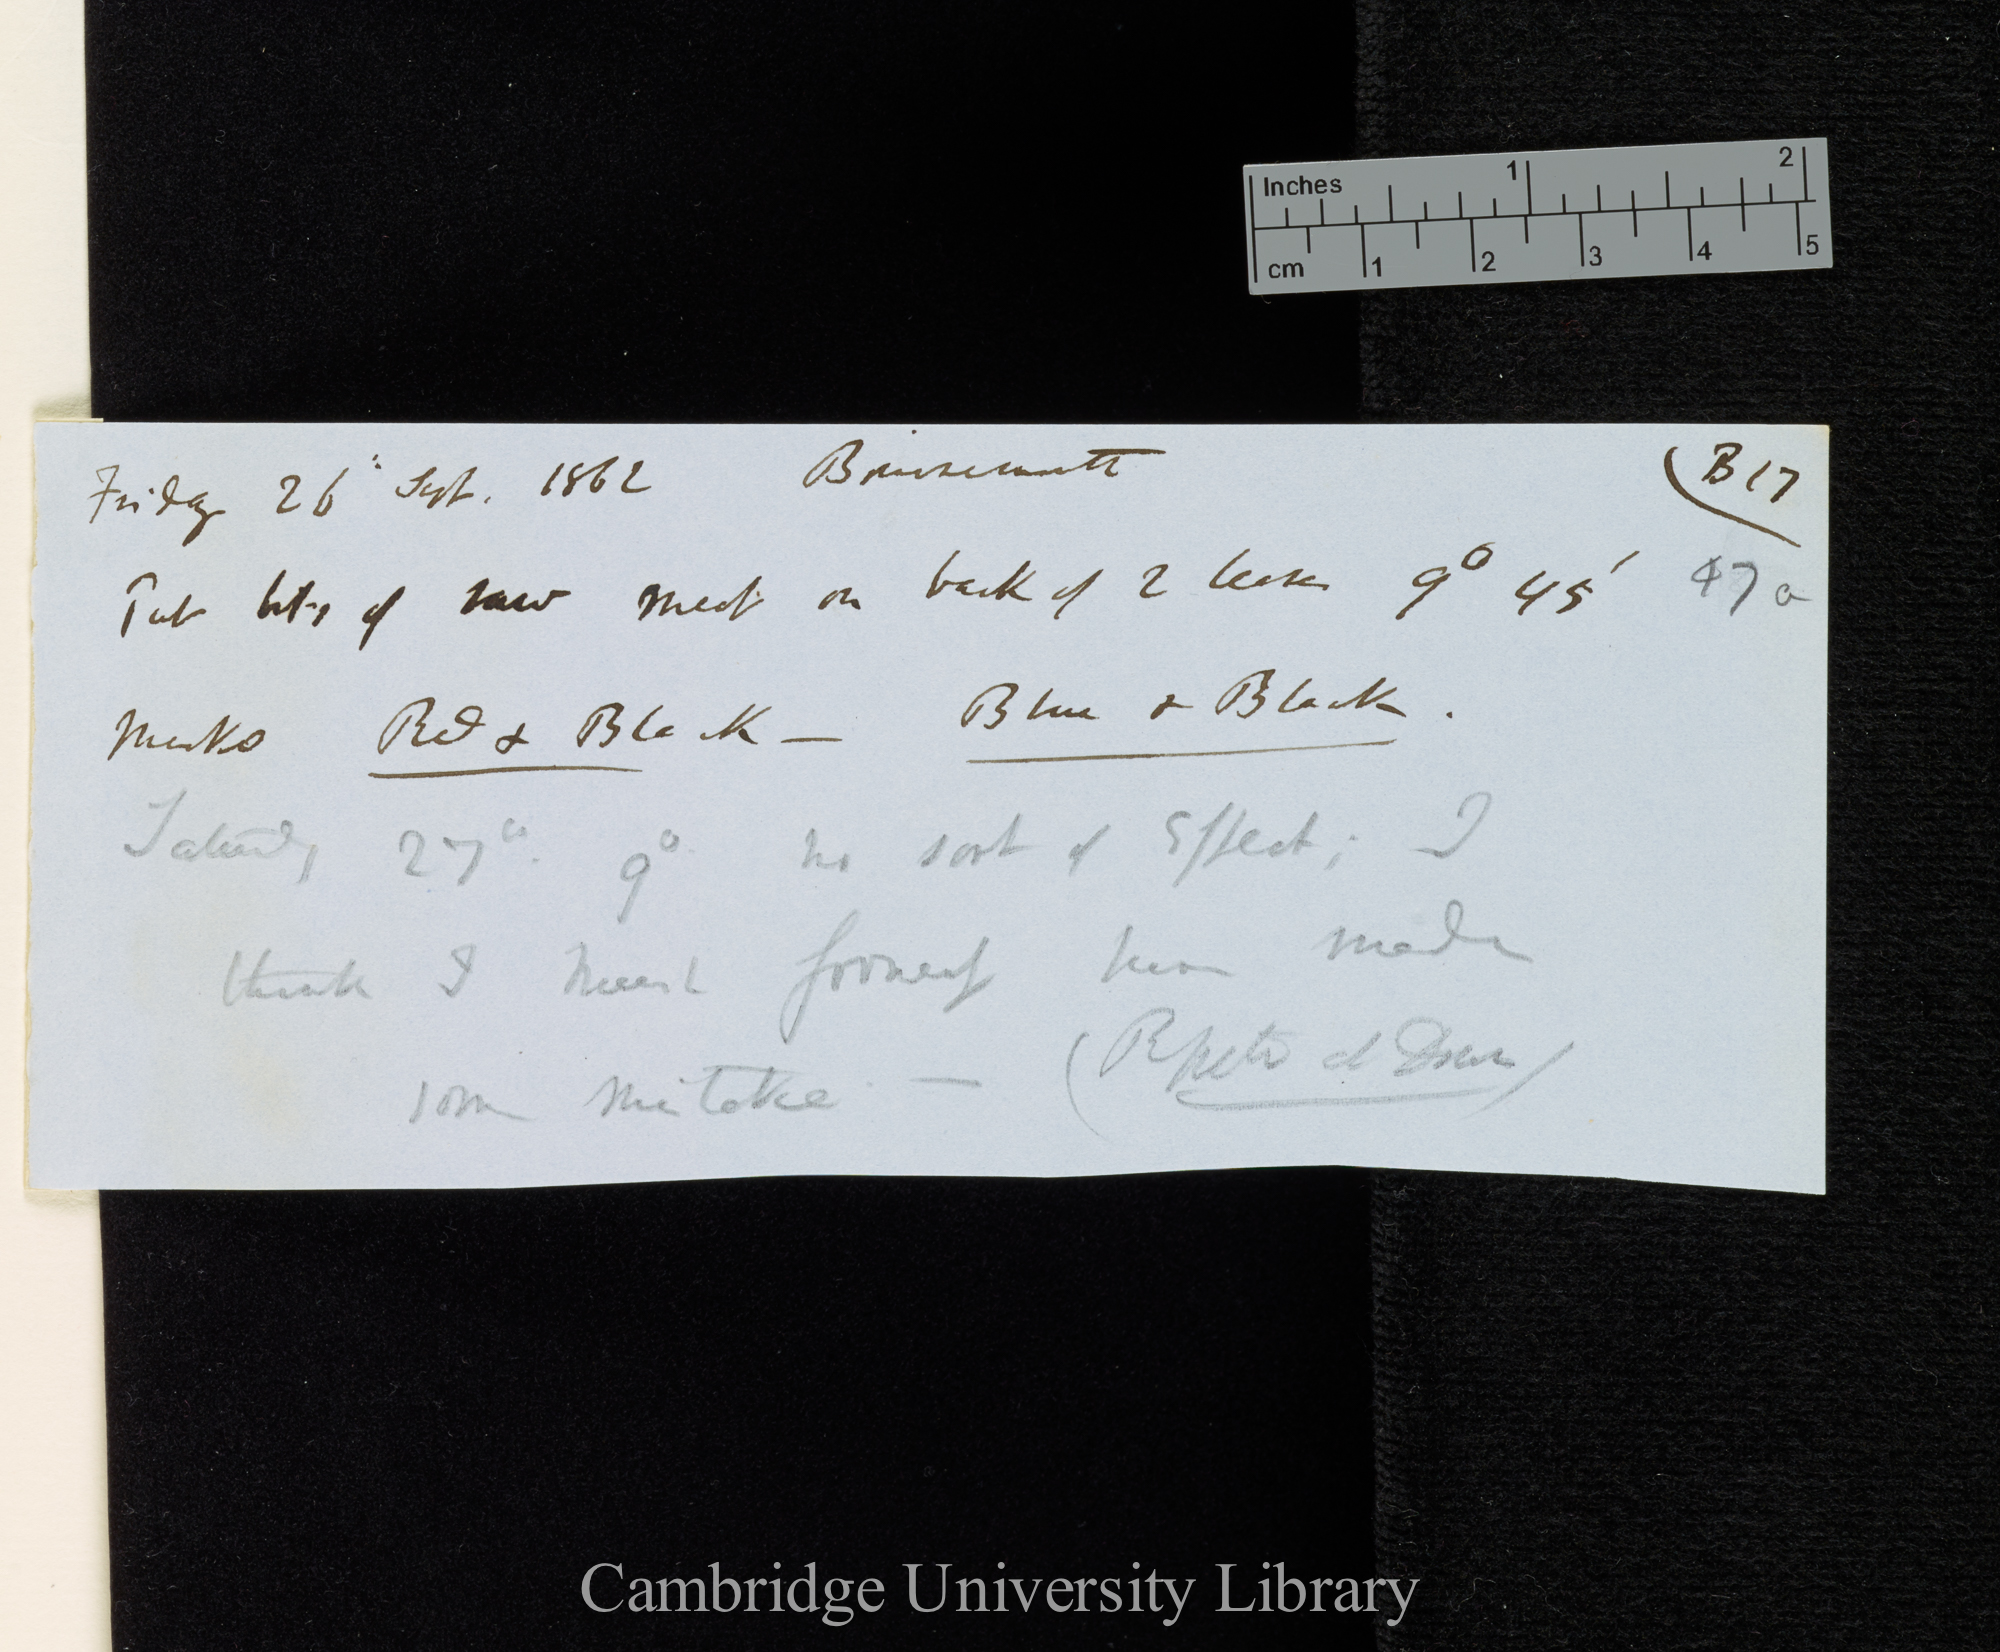 Inches 1 2
cm 1 2 3 4 5
Friday 26th Sept. 1862 Bournemouth (B 17
Put bits of raw meat on back of 2 leaves 9° 45' 47a
Marks Red & Black — Blue & Black.
Saturday 27th. 9° no sort of Effect; I
think I must formerly have made
some mistake. — (Repeated at Down)
Cambridge University Library